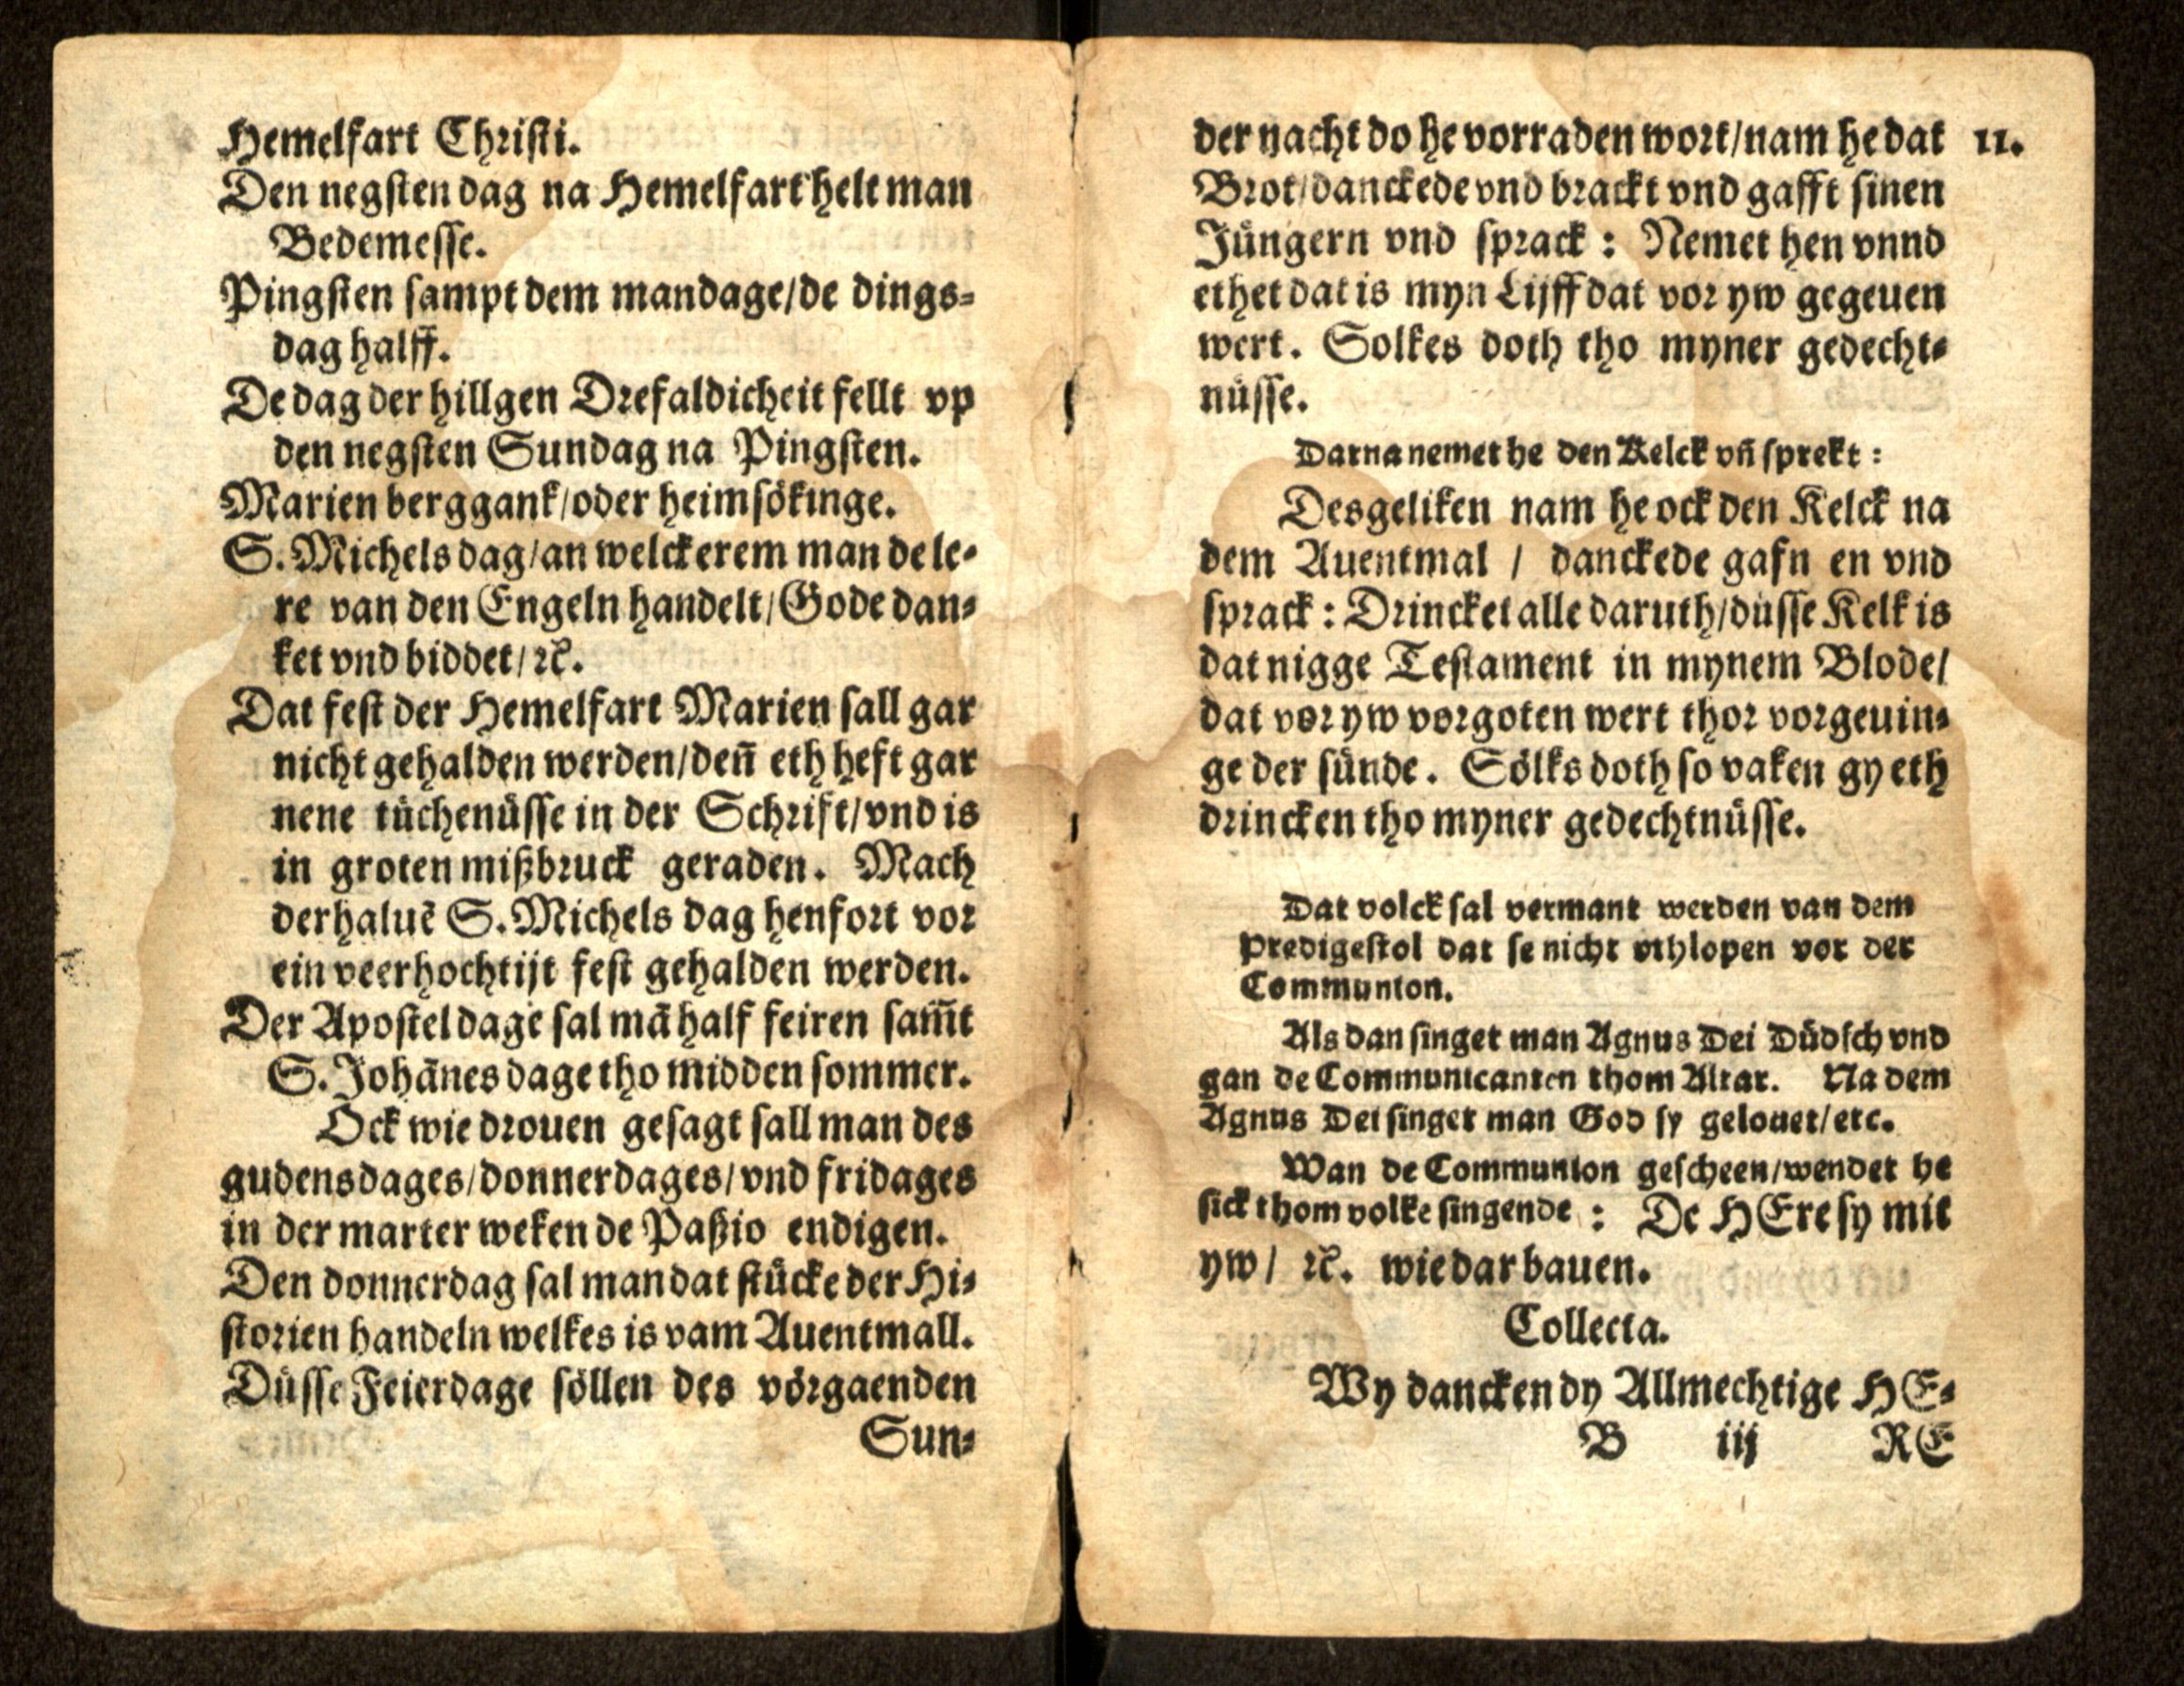 Hemelfart Chꝛiſti.
Den negſten dag na Hemelfart helt man
Bedemeſſe.
Pingſten ſampt dem mandage/de dings⸗
dag halff.
De dag der hillgen Dꝛefaldicheit fellt vp
den negſten Sundag na Pingſten.
Marien berggank/oder heimſoͤkinge.
S. Michels dag/an welckerem man de le⸗
re van den Engeln handelt/Gode dan⸗
ket vnd biddet/ꝛc̃.
Dat feſt der Hemelfart Marien ſall gar
nicht gehalden werden/den̄ eth heft gar
nene tuͤchenuͤſſe in der Schꝛift/vnd is
in groten mißbꝛuck geraden. Mach
derhaluē S. Michels dag henfoꝛt voꝛ
ein veerhochtijt feſt gehalden werden.
Der Apoſtel dage ſal mā half feiren ſam̄t
S. Johānes dage tho midden ſommer.
Ock wie dꝛouen geſagt ſall man des
gudensdages/donnerdages/vnd fridages
in der marter weken de Paßio endigen.
Den donnerdag ſal man dat ſtuͤcke der Hi⸗
ſtoꝛien handeln welkes is vam Auentmall.
Duͤſſe Feierdage ſoͤllen des voͤꝛgaenden
Sun⸗
der nacht do he vorraden woꝛt/nam he dat
11.
Bꝛot/danckede vnd bꝛackt vnd gafft ſinen
Juͤngern vnd ſpꝛack : Nemet hen vnnd
ethet dat is myn Lijff dat voꝛ yw gegeuen
wert. Solkes doth tho myner gedecht⸗
nuͤſſe.
Darna nemet he den Kelck vn̄ ſprekt :
Desgeliken nam he ock den Kelck na
dem Auentmal / danckede gafn en vnd
ſpꝛack : Dꝛincket alle daruth/duͤſſe Kelk is
dat nigge Teſtament in mynem Blode/
dat voꝛ yw voꝛgoten wert thoꝛ voꝛgeuin⸗
ge der ſuͤnde. Soͤlks doth ſo vaken gy eth
dꝛincken tho myner gedechtnuͤſſe.
Dat volck ſal vermant werden van dem
Predigeſtol dat ſe nicht vthlopen vor der
Communion.
Als dan ſinget man Agnus Dei Duͤdſch vnd
gan de Communicanten thom Altar. Na dem
Agnus Dei ſinget man God ſy gelouet/etc.
Wan de Communion geſcheen/wendet he
ſick thom volke ſingende : De HEre ſy mit
yw / ꝛc̃. wie dar bauen.
Collecta.
Wy dancken dy Allmechtige HE⸗
B iij RE